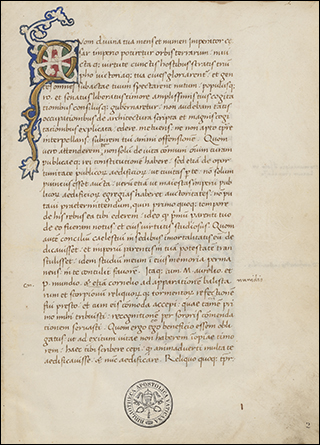 Quom divina tua mens et numen imperator ce-
sar imperio potiretur orbis terrarum: invi
ctaq; virtute cunctis hostibus stratis trium
pho victoriaq; tua cives gloriarent: et gen
tes omnes subactae tuum spectarent nutum: populusq;
.ro. et senatus liberatus timore amplissimis tuis cogita
tionibus consiliisq; gubernaretur: non audebam tatis
occupationibus de architectura scripta et magnis cogi
tationibus explicata edere: metuens ne non apto tpre
interpellans subirem tui animi offensione. Quom
vero attenderem non solu de vita comuni oium curam
publicaeq; rei constitutione habere: sed etia de opor
tunitate publicor. aedificior. ut civitas p te no solum
provinciis esset aucta: verum etia ut maiestas imperii pub
licor. aedificior. egregias haberet auctoritates: no pu
tavi praetermittendum, quin primo quoq; tempore
de his rebus ea tibi ederem: ideo q primu parenti tuo
de eo fueram notus: et eius virtutis studiosus. Quom
aute concilium caelestiu in sedibus immortalitatis eu de
dicavisset: et imperiu parentis in tua potestate tran
stulisset: idem studiu meum i eius memoria perma
nens in te contulit favore. Itaq; cum M. aurelio et
P. minidio & Gn. cornelio ad apparatione balista
rum et scorpionu reliquor.q; tormentor. refectione
fui presto: et cum eis comoda accepi: quae cum pri
mo imbi tribuisti: recognitione per sororis comenda
tionem servasti. Quom ergo ego beneficio essem obli
gatus: ut ad exitum vitae non haberem iopiae timo
rem: haec tibi scribere cepi: q animadverti multa te
aedificavisse: & nuc aedificare. Reliquo quoq; tpr.
BIBLIOTHECA APOSTOLICA VATICANA
2